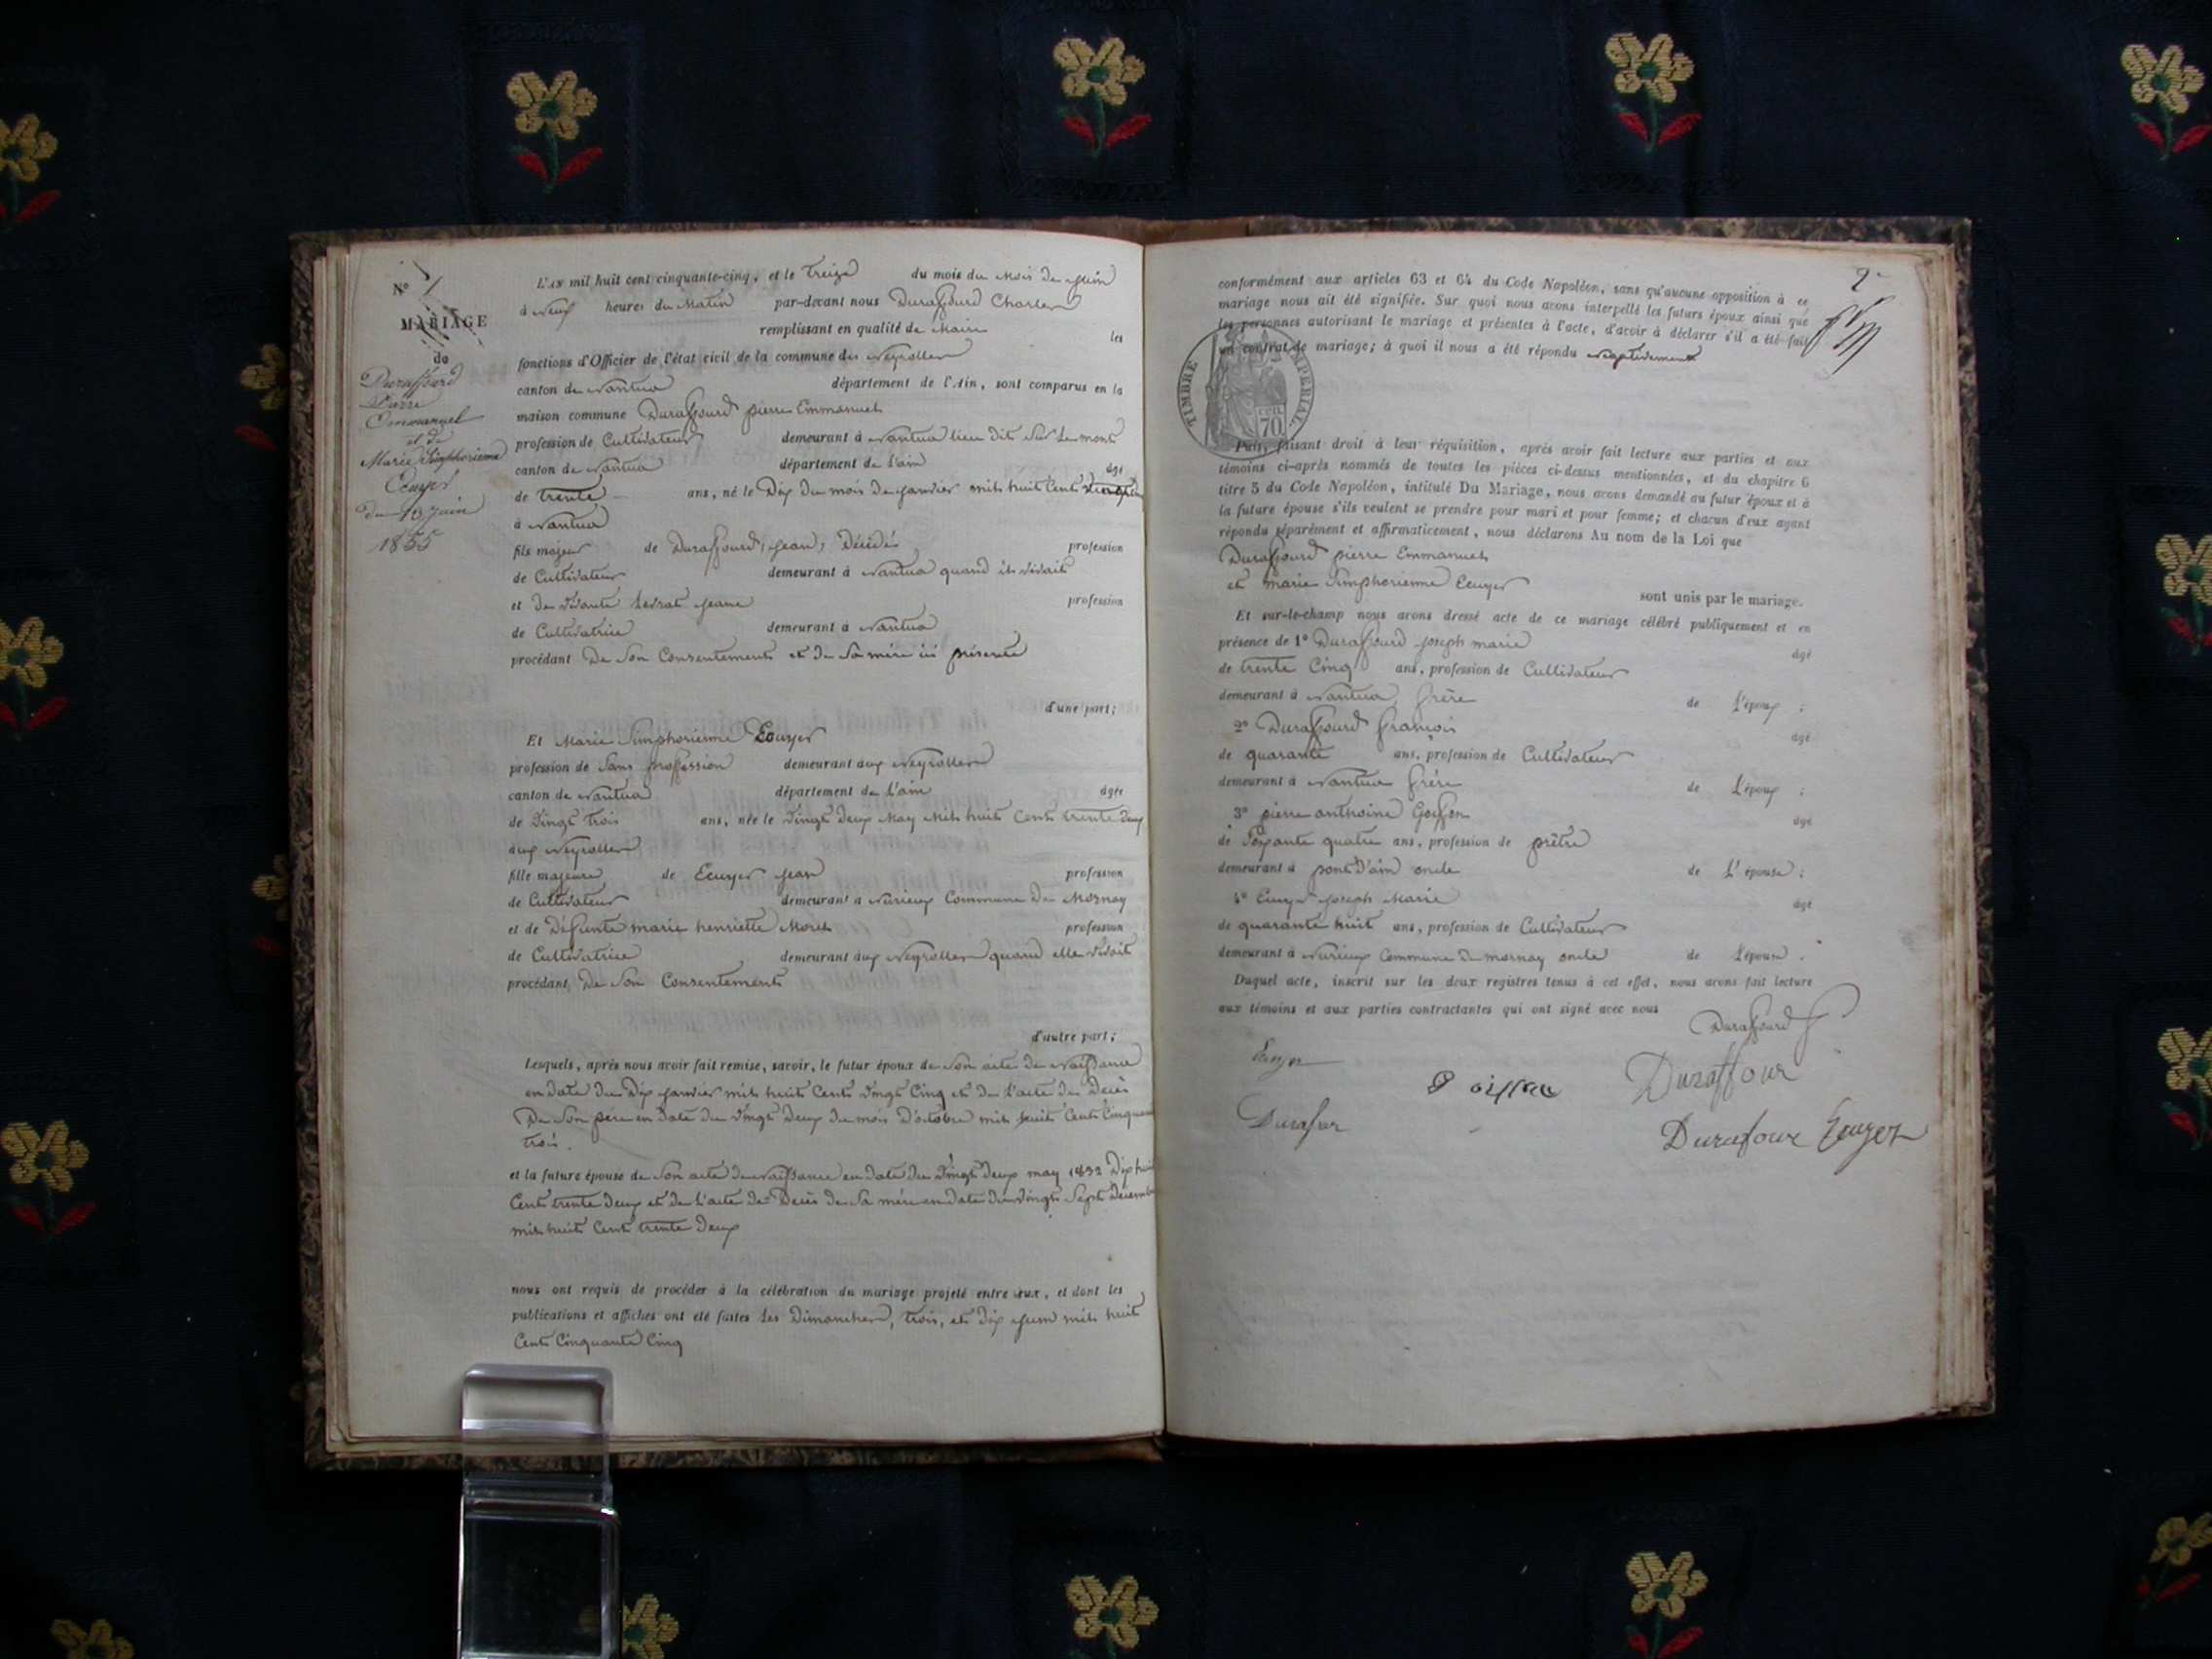 N° 1
MARIAGE
de
Duraffourd
Pierre
Emmanuel
et de
Marie Simphorienne
Ecuyer
du 13 juin
1855
L'AN mil huit cent cinquante-cinq, et le treize du mois du mois de juin
à neuf heures du matin par-devant nous Duraffourd Charles
remplissant en qualité de Maire les
fonctions d'Officier de l'état civil de la commune des Neyrolles
canton de Nantua département de l'Ain, sont comparus en la
maison commune Duraffourd pierre Emmanuel
profession de Cultivateur demeurant à Nantua lieu dit Sur les monts
canton de Nantua département de l'ain âgé
de trente ans, né le Dix du mois de janvier mil huit Cents
à Nantua
fils majeur de Duraffourd jean, Décédé profession
de Cultivateur demeurant à Nantua quand il vivait
et de vivante Levrat jeane profession
de Cultivatrice demeurant à Nantua
procédant De Son Consentement et de Sa mère ici présente
d'une part;
Et Marie Simphorienne Ecuyer
profession de Sans proffession demeurant aux Neyrolles
canton de Nantua département de L'ain âgée
de vingt trois ans, née le vingt deux May mil huit Cents trente deux
aux Neyrolles
fille majeure de Ecuyer jean profession
de Cultivateur demeurant à Nurieux Commune De Mornay
et de Défunte marie henriette Morel profession
de Cultivatrice demeurant aux Neyrolles quand elle vivait
procédant De Son Consentement
d'autre part;
Lesquels, après nous avoir fait remise, savoir, le futur époux de Son acte de Naissance
en date du Dix janvier mil huit Cents vingt Cinq et de l'acte de Décès
De Son père en date du vingt Deux du mois d'octobre mil huit Cents Cinquante
trois.
et la future épouse de Son acte de Naissance en date du vingt deux may 1832 Dix huit
Cents trente deux et de l'acte de Décès de Sa mère en date du vingt Sept Décembre
mil huit Cents trente deux
nous ont requis de procéder à la célébration du mariage projeté entre eux, et dont les
publications et affiches ont été faites Les Dimanches, trois, et dix juin mil huit
Cents Cinquante Cinq
2
conformément aux articles 63 et 64 du Code Napoléon, sans qu'aucune opposition à ce
mariage nous ait été signifiée. Sur quoi nous avons interpellé les futurs époux ainsi que
les personnes autorisant le mariage et présentes à l'acte, d'avoir à déclarer s'il a été fait
un contrat de mariage; à quoi il nous a été répondu négativement
TIMBRE IMPERIAL
70 cen.
Puis, faisant droit à leur réquisition, après avoir fait lecture aux parties et aux
témoins ci-après nommés de toutes les pièces ci-dessus mentionnées, et du chapitre 6
titre 5 du Code Napoléon, intitulé Du Mariage, nous avons demandé au futur époux et à
la future épouse s'ils veulent se prendre pour mari et pour femme; et chacun d'eux ayant
répondu séparément et affirmativement, nous déclarons Au nom de la Loi que
Duraffourd pierre Emmanuel
et marie Simphorienne Ecuyer
sont unis par le mariage.
Et sur-le-champ nous avons dressé acte de ce mariage célébré publiquement et en
présence de 1° Duraffourd joseph marie âgé
de trente Cinq ans, profession de Cultivateur
demeurant à Nantua frère de L'époux;
2° Duraffourd françois âgé
de quarante ans, profession de Cultivateur
demeurant à Nantua frère de L'époux;
3° pierre anthoine Goiffon âgé
de Soixante quatre ans, profession de prêtre
demeurant à pont d'ain oncle de L'épouse;
4° Ecuyer joseph Marie âgé
de quarante huit ans, profession de Cultivateur
demeurant à Nurieux Commune de mornay oncle de L'épouse.
Duquel acte, inscrit sur les deux registres tenus à cet effet, nous avons fait lecture
aux témoins et aux parties contractantes qui ont signé avec nous
Duraffourd
Ecuyer
Duraffour
Durafour Ecuyer